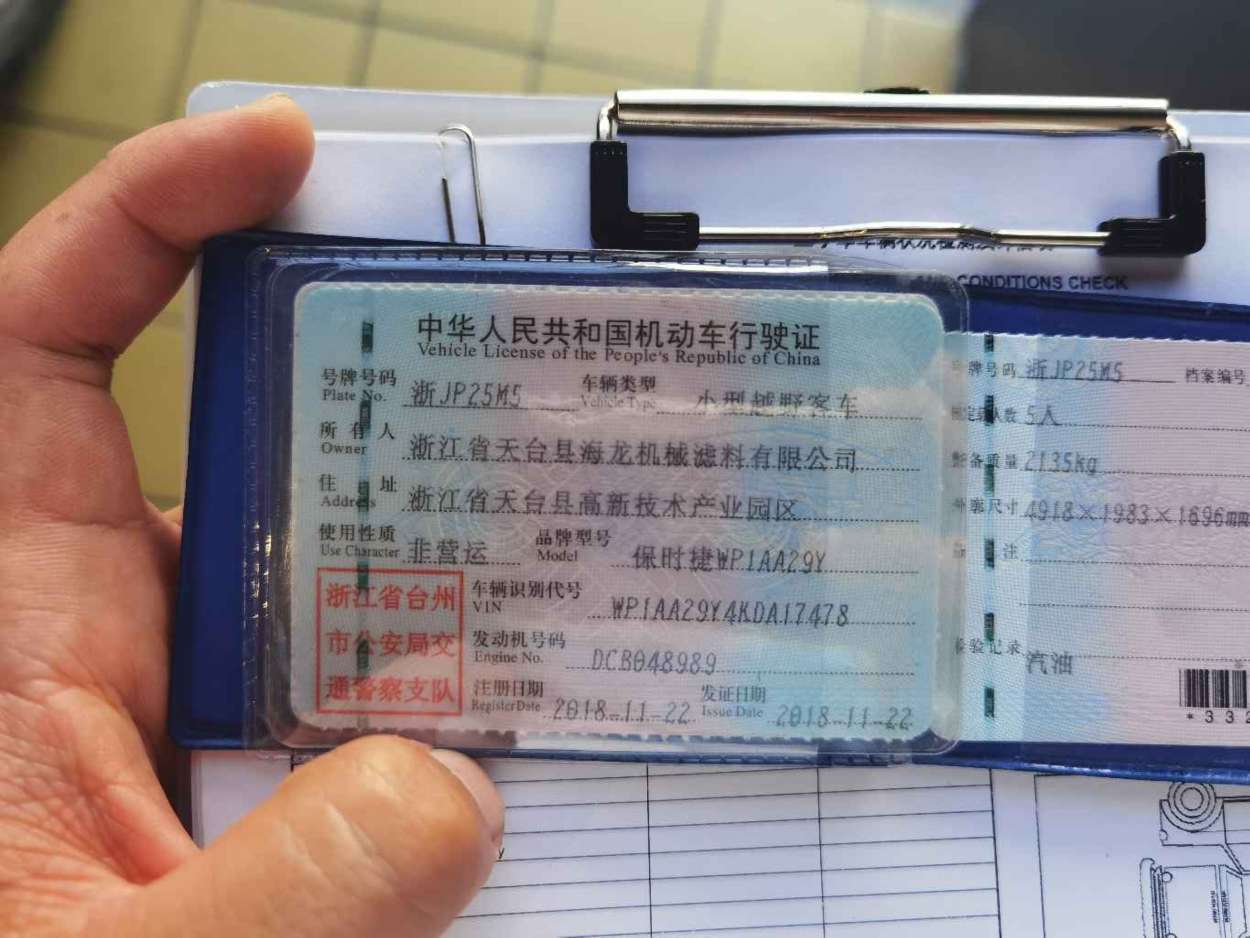 CONDITIONS CHECK
中华人民共和国机动车行驶证
Vehicle License of the People's Republic of China
号牌号码 浙JP25M5 车辆类型 小型越野客车
Plate No. Vehicle Type
所有人 浙江省天台县海龙机械滤料有限公司
Owner
住址 浙江省天台县高新技术产业园区
Address
使用性质 非营运 品牌型号 保时捷WP1AA29Y
Use Character Model
浙江省台州
市公安局交
通警察支队
车辆识别代号 WP1AA29Y4KDA17478
VIN
发动机号码 DCB048989
Engine No.
注册日期 2018-11-22 发证日期 2018-11-22
Register Date Issue Date
号牌号码 浙JP25M5 档案编号
人数 5人
备质量 2135kg
外廓尺寸 4918×1983×1696mm
注
检验记录
汽油
*332